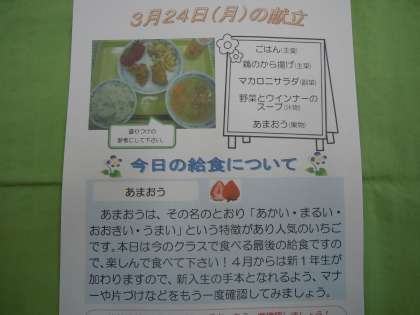 3月24日(月)の献立
ごはん(主食)
鶏のから揚げ(主菜)
マカロニサラダ(副菜)
野菜とウインナーの
スープ(汁物)
あまおう(果物)
盛りつけの
参考にして下さい。
今日の給食について
あまおう
あまおうは、その名のとおり「あかい・まるい・
おおきい・うまい」という特徴があり人気のいちご
です。本日は今のクラスで食べる最後の給食ですの
で、楽しんで食べて下さい!4月からは新1年生が
加わりますので、新入生の手本となれるよう、マナ
ーや片づけなどをもう一度確認してみましょう。